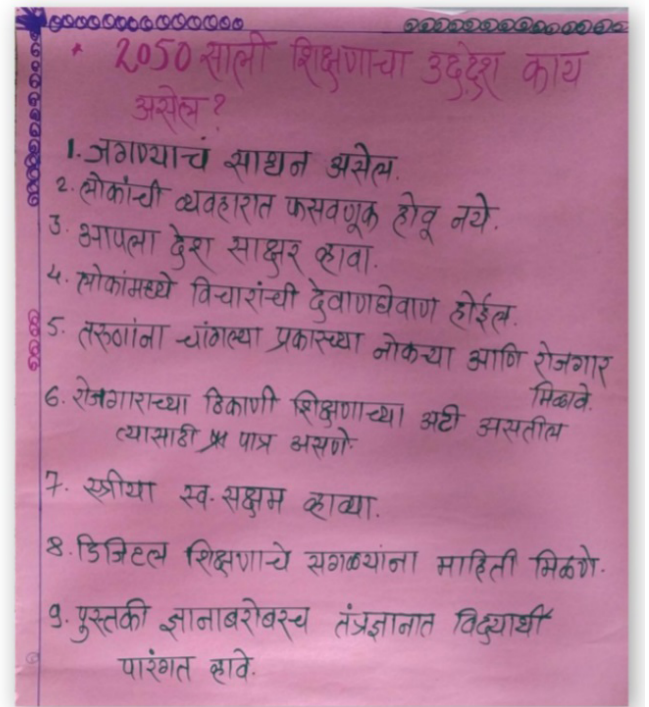 * 2050 साली शिक्षणाचा उद्देश काय
असेल?
1. जगण्याचं साधन असेल.
2. लोकांची व्यवहारात फसवणूक होवू नये.
3. आपला देश साक्षर व्हावा.
4. लोकांमध्ये विचारांची देवाणघेवाण होईल.
5. तरुणांना चांगल्या प्रकारच्या नोकऱ्या आणि रोजगार
मिळावे.
6. रोजगाराच्या ठिकाणी शिक्षणाच्या अटी असतील
त्यासाठी पात्र असणे.
7. स्त्रीया स्व-सक्षम व्हाव्या.
8. डिजिटल शिक्षणाचे सगळ्यांना माहिती मिळणे.
9. पुस्तकी ज्ञानाबरोबरच तंत्रज्ञानात विद्यार्थी
पारंगत व्हावे.